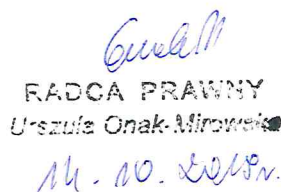 RADCA PRAWNY
Urszula Onak-Mirowska
14.10.2018r.